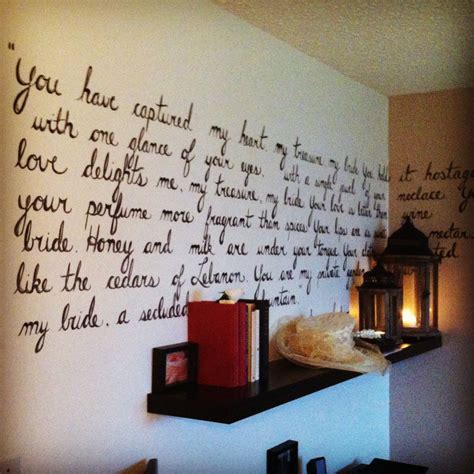 "You have captured my heart, my treasure, my bride. You hold it hostag
with one glance of your eyes, with a single jewel of your neclace. Your
love delights me, my treasure, my bride. Your love is better than wine
your perfume more fragrant than spices. Your lips are as sweet nectar
bride. Honey and milk are under your tongue. Your
like the cedars of Lebanon. You are my private
my bride, a secluded